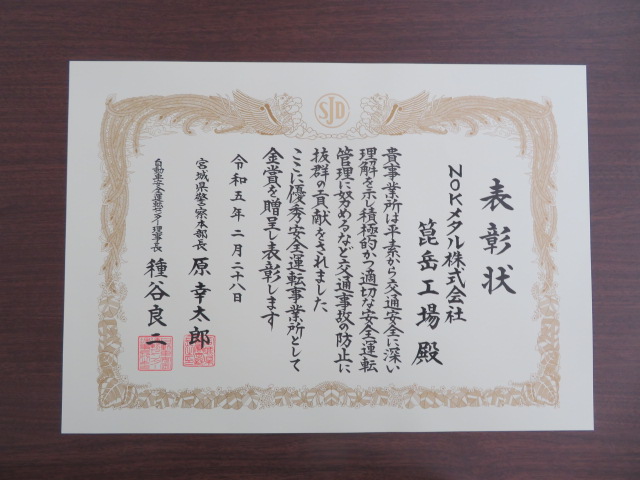 SJD
表彰状
NOKメタル株式会社
箟岳工場殿
貴事業所は平素から交通安全に深い
理解を示し積極的かつ適切な安全運転
管理に努めるなど交通事故の防止に
抜群の貢献をされました
ここに優秀安全運転事業所として
金賞を贈呈し表彰します
令和五年二月二十八日
宮城県警察本部長 原幸太郎
自動車安全運転センター理事長 種谷良二